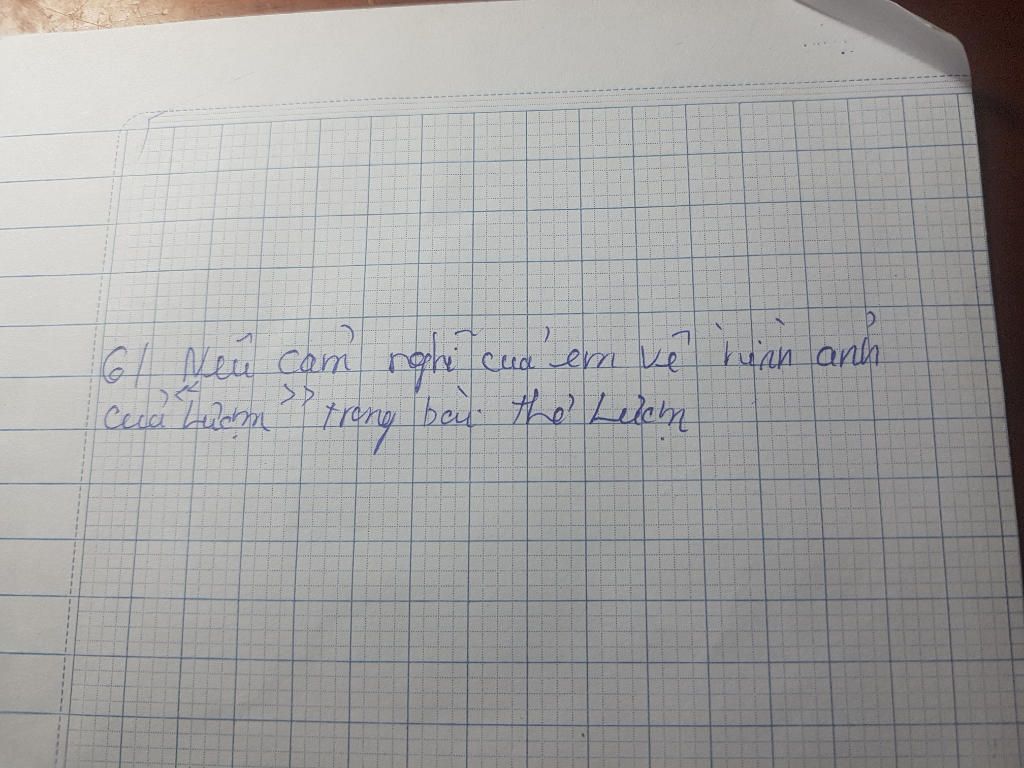 6/ Nêu cảm nghĩ của em về hình ảnh
của «Lượm» trong bài thơ Lượm